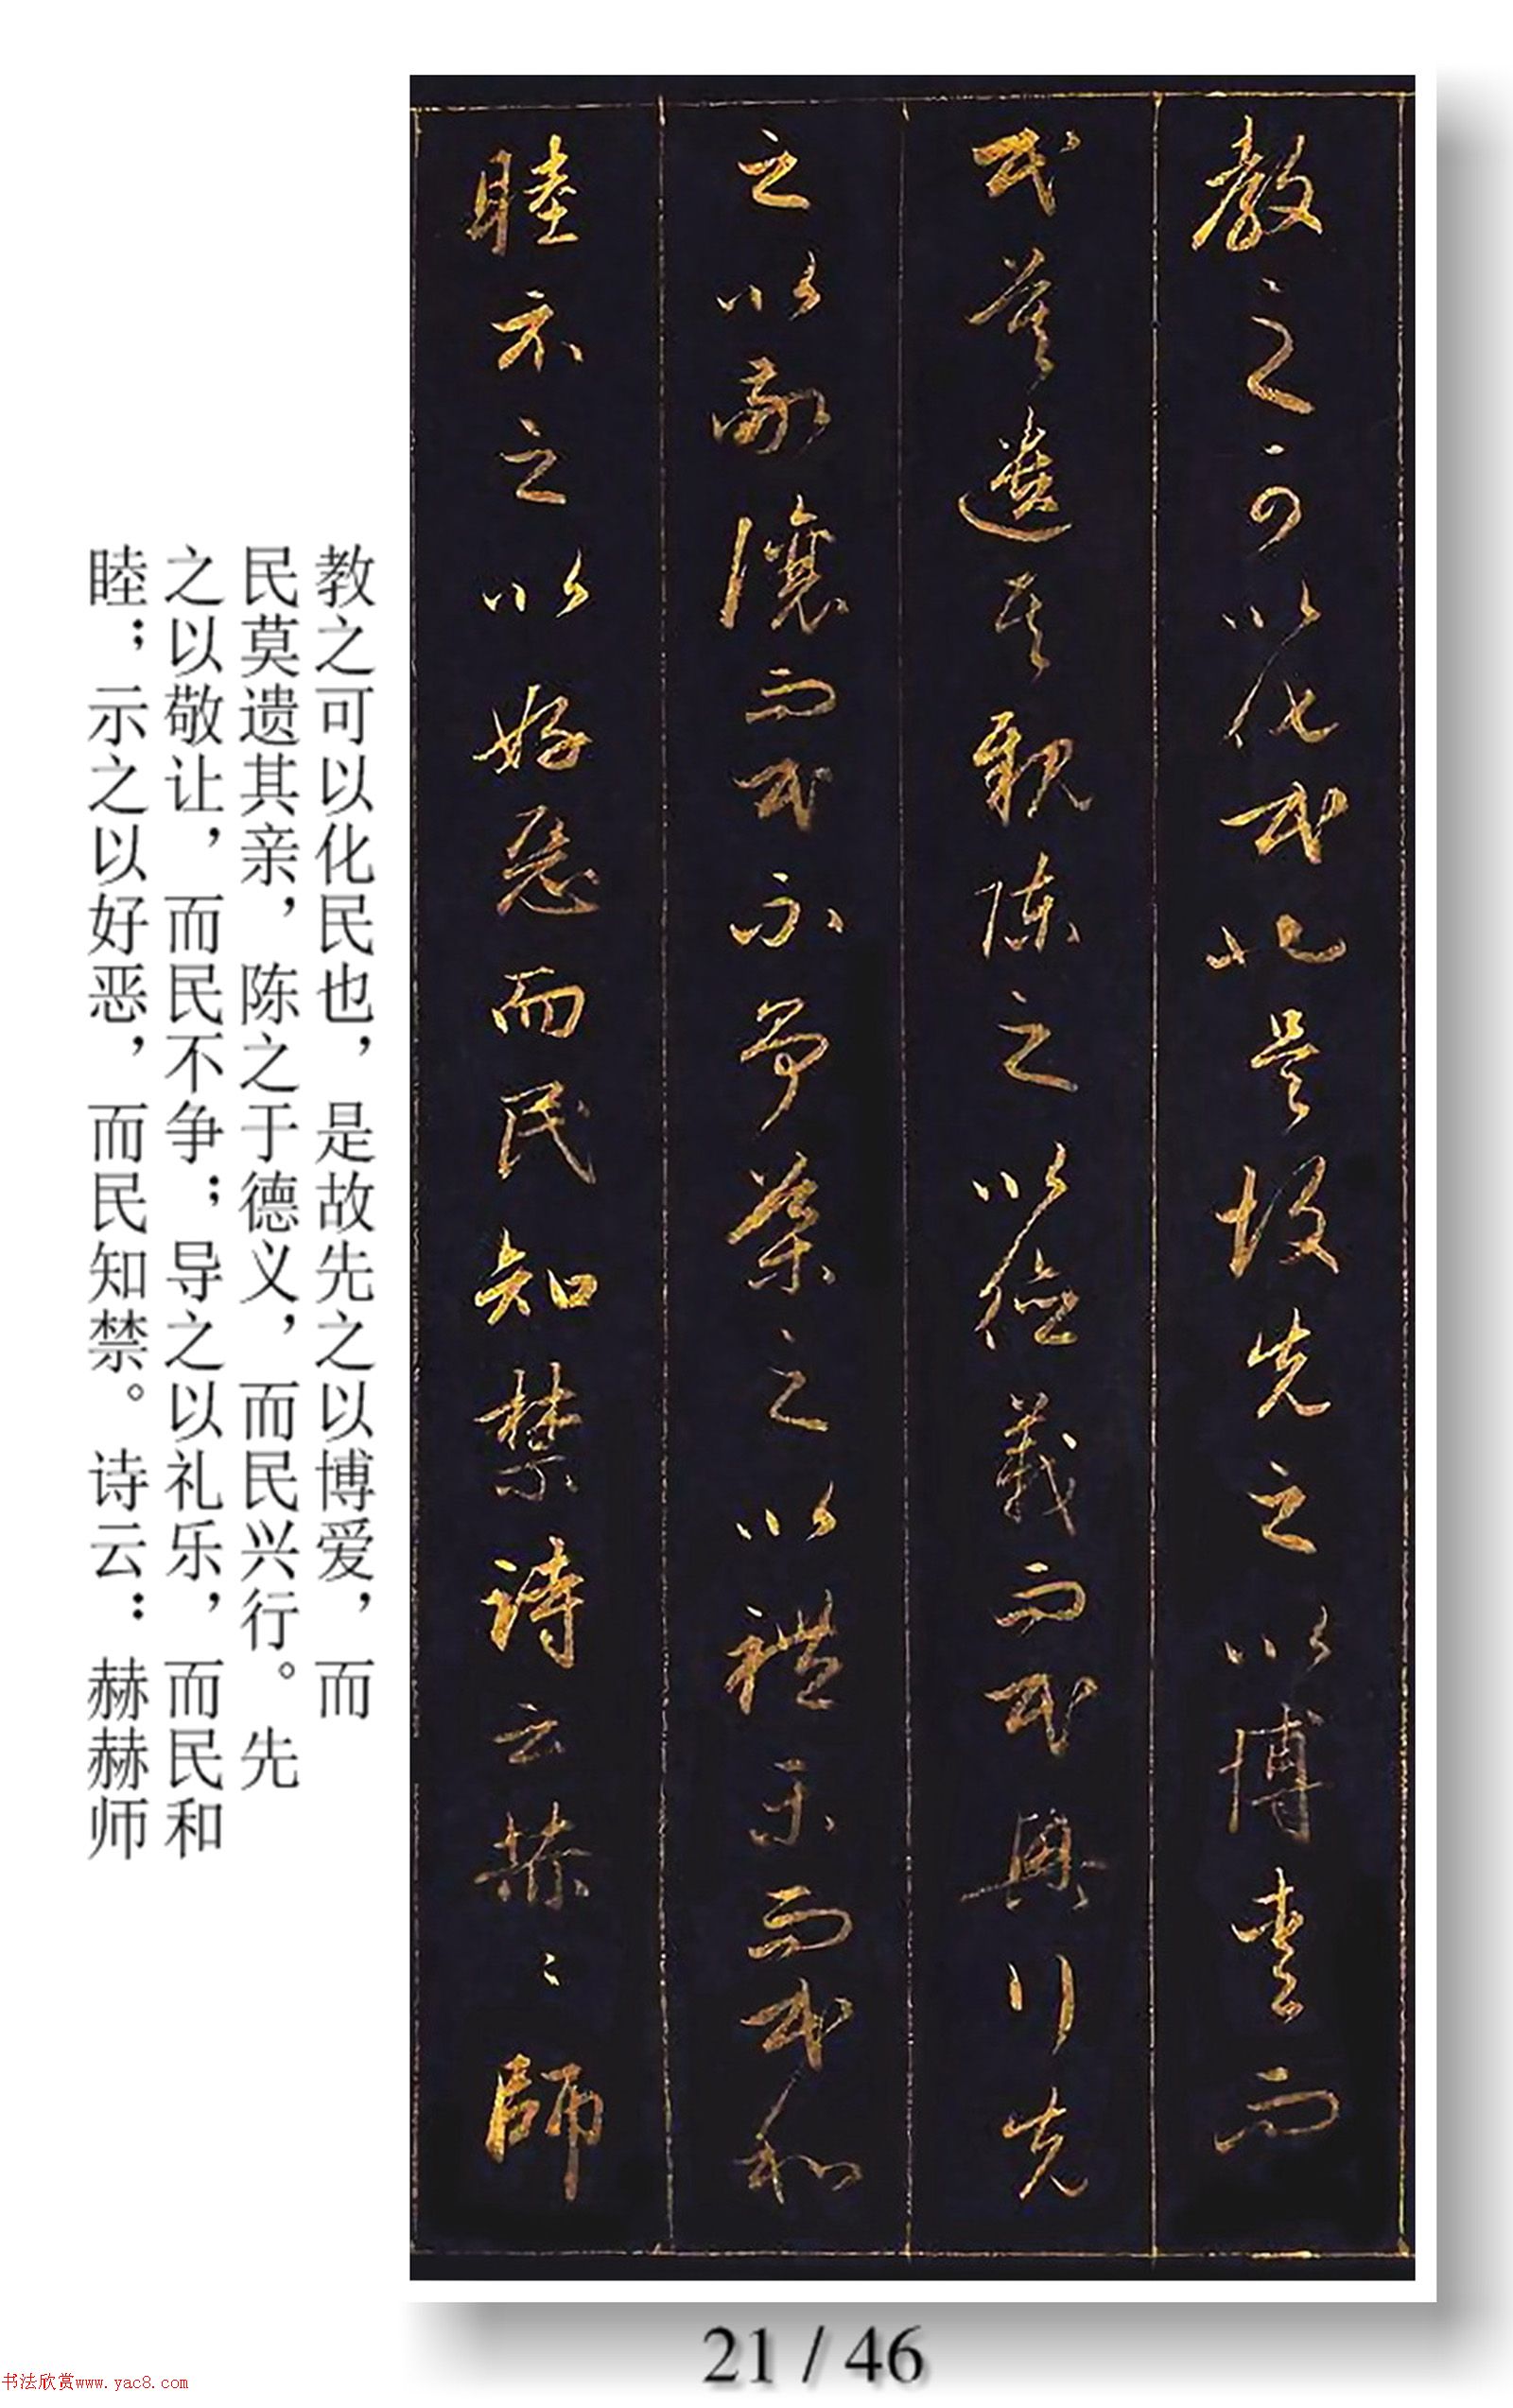 教之可以化民也是故先之以博愛而
民莫遺其親陳之以德義而民興行先
之以敬讓而民不爭導之以禮樂而民和
睦示之以好惡而民知禁詩云赫〻師
教之可以化民也，是故先之以博爱，而
民莫遗其亲，陈之于德义，而民兴行。先
之以敬让，而民不争；导之以礼乐，而民和
睦；示之以好恶，而民知禁。诗云：赫赫师
21 / 46
书法欣赏www.yac8.com